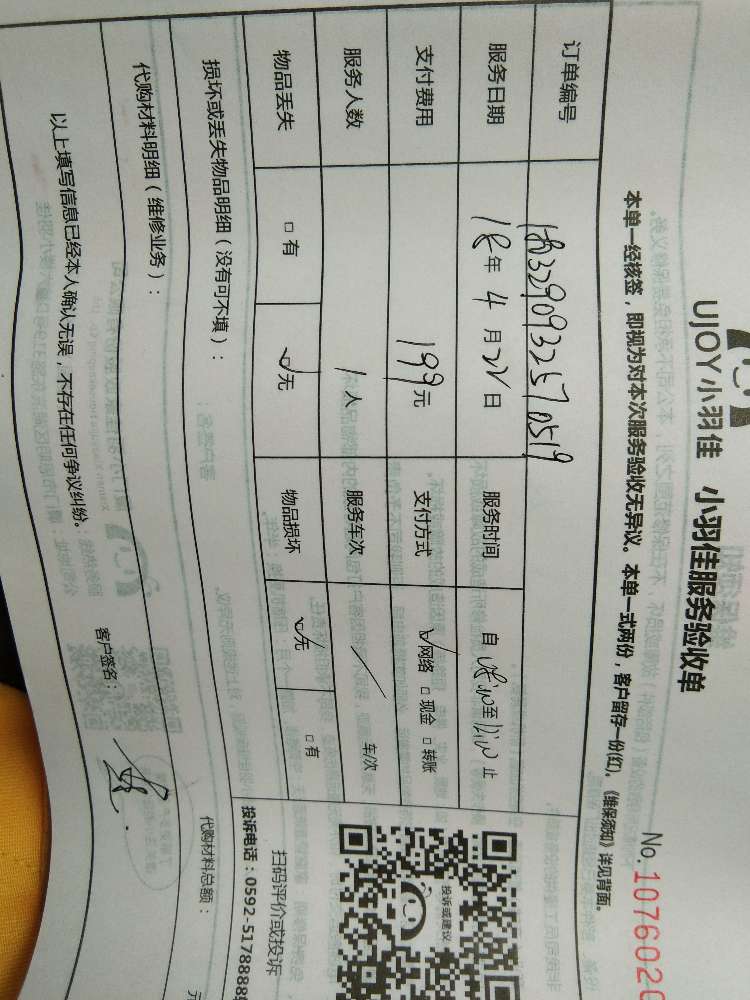 UJOY小羽佳 小羽佳服务验收单
No.1076020
本单一经核签，即视为对本次服务验收无异议。本单一式两份，客户留存一份(红)。《维保须知》详见背面。
订单编号
服务日期 18年4月21日 服务时间 自 至 止
支付费用 199元 支付方式 ☑网络 □现金 □转账
服务人数 1人 服务车次 / 车/次
物品丢失 □有 ☑无 物品损坏 ☑无 □有
损坏或丢失物品明细（没有可不填）：
代购材料明细（维修业务）：
代购材料总额： 元
以上填写信息已经本人确认无误，不存在任何争议纠纷。 客户签名：
投诉或建议
扫码评价或投诉
投诉电话：0592-5178888